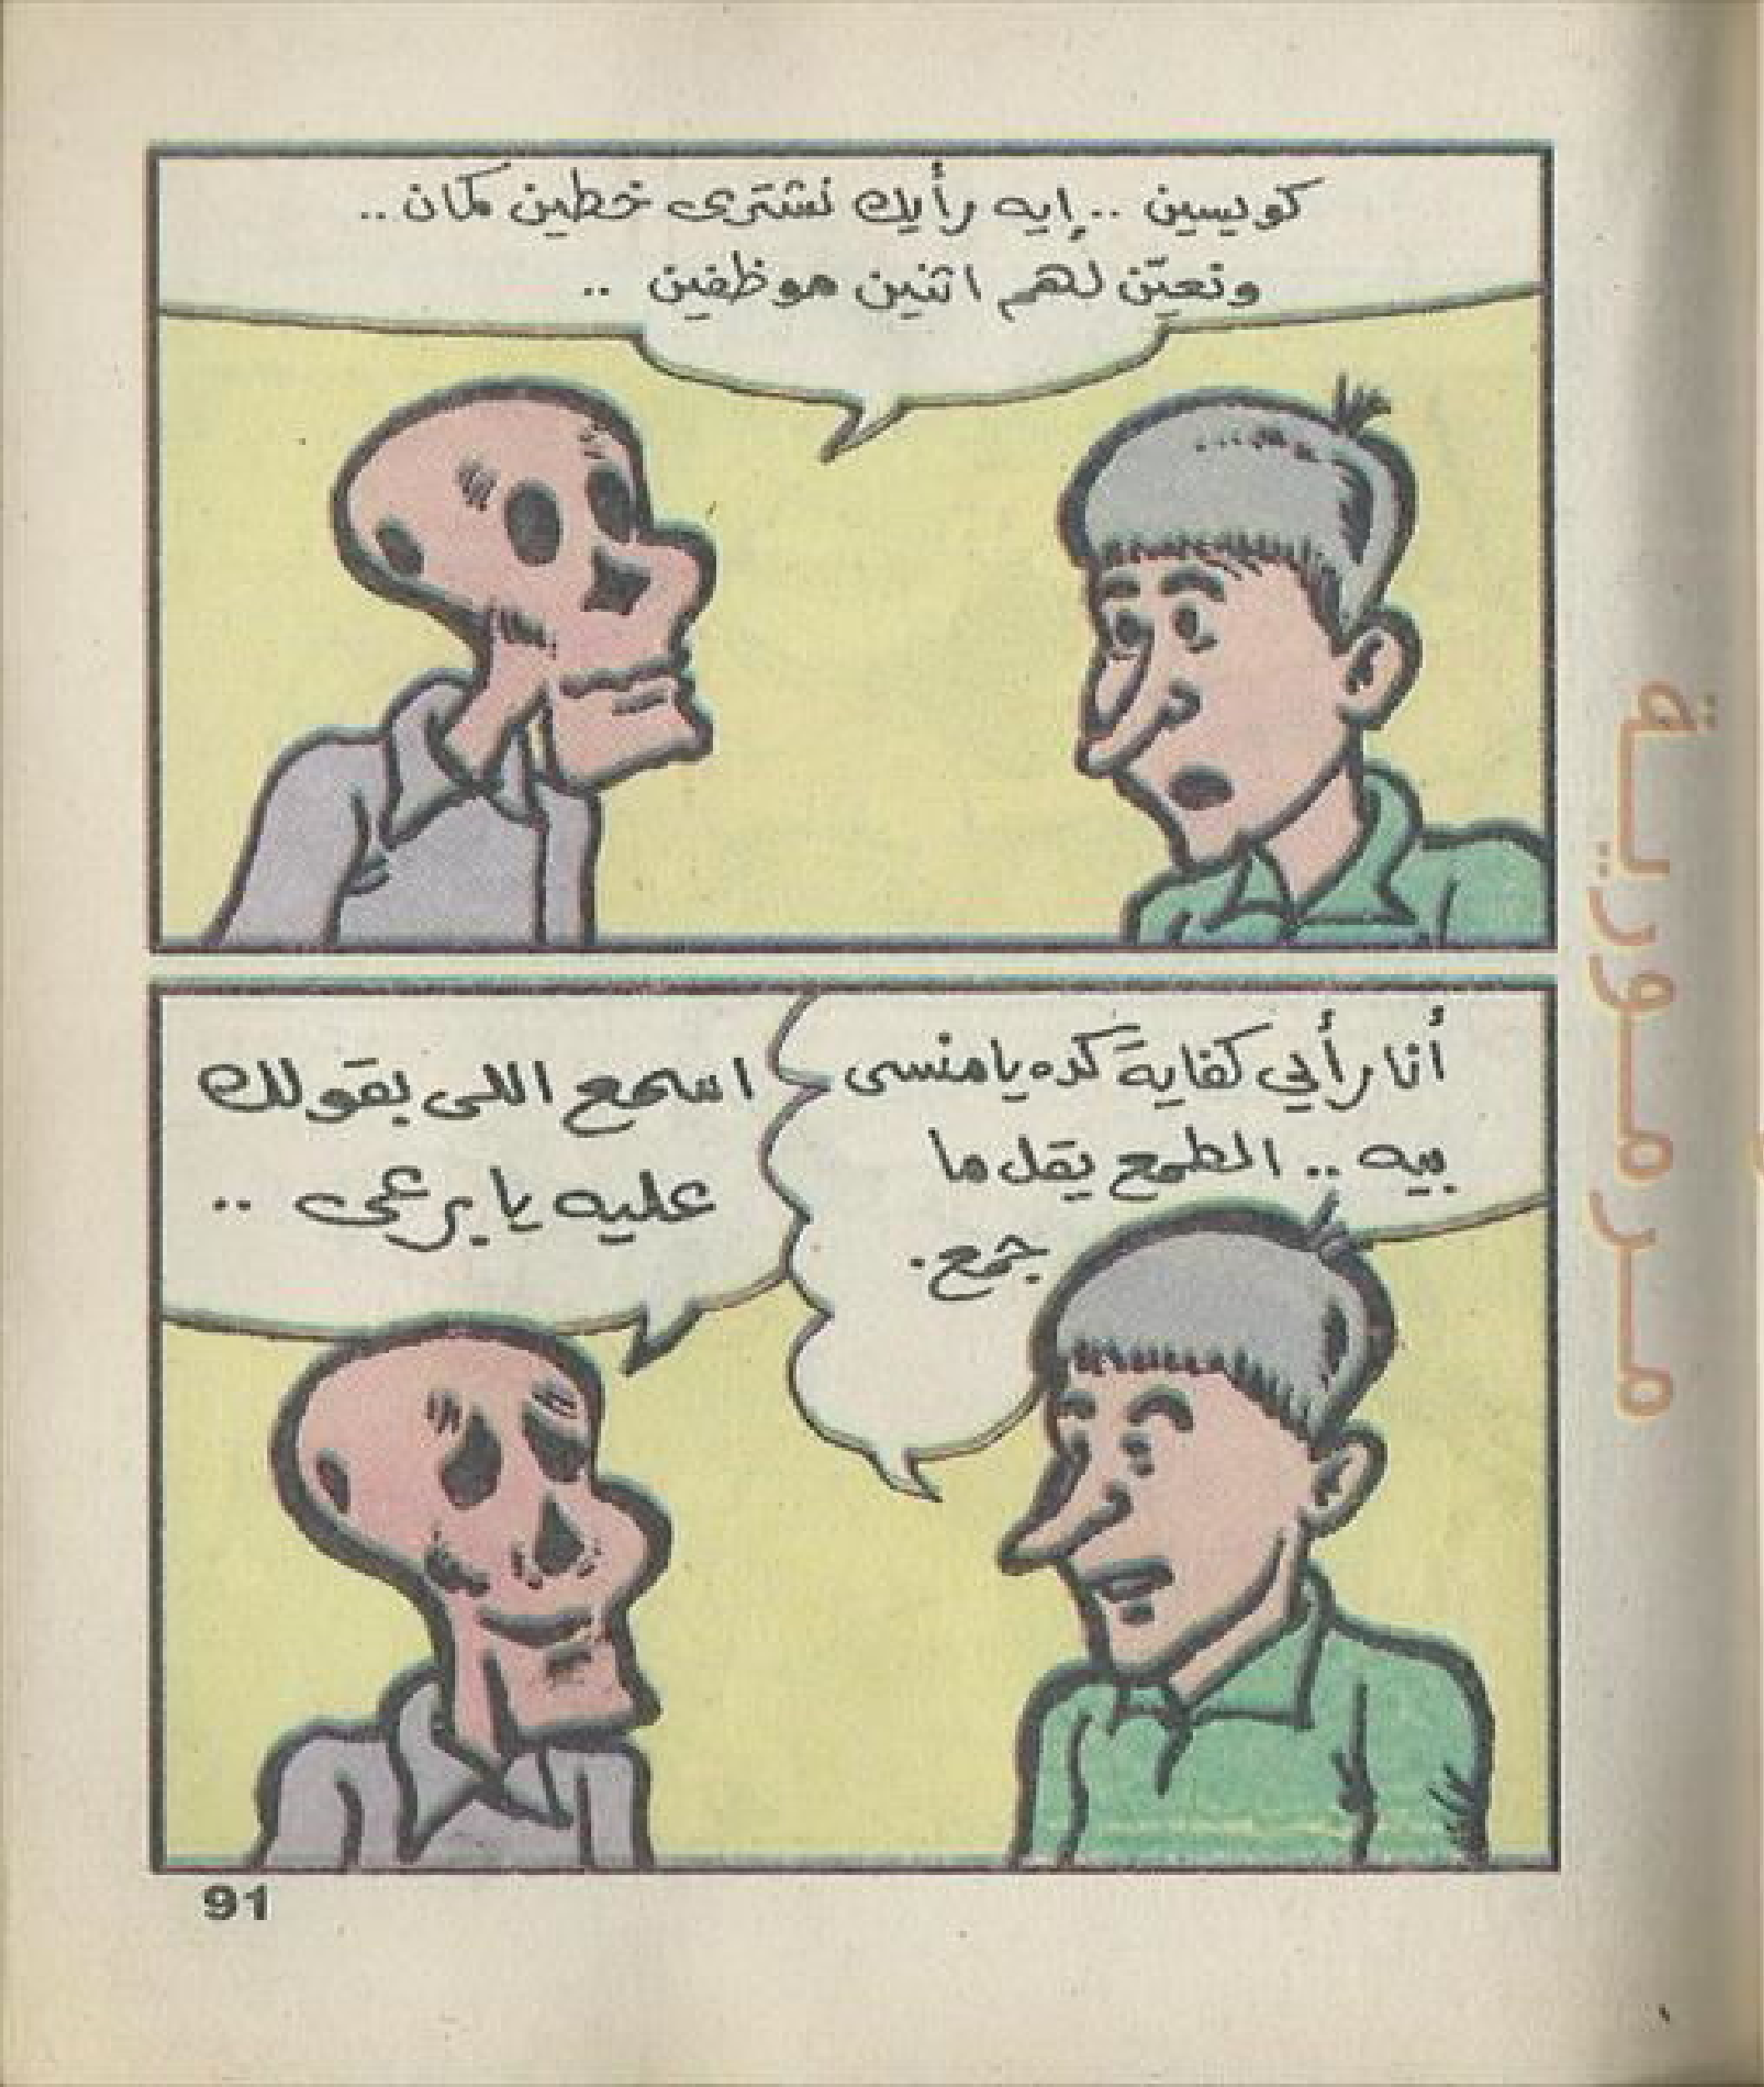 كويسين .. إيه رأيك نشترى خطين كمان ..
ونعيّن لهم اتنين موظفين ..
أنا رأيي كفاية كده يا منسى
بيه .. الطمع يقل ما
جمع .
اسمع اللى بقولك
عليه يا برعى ..
مرمورية
91